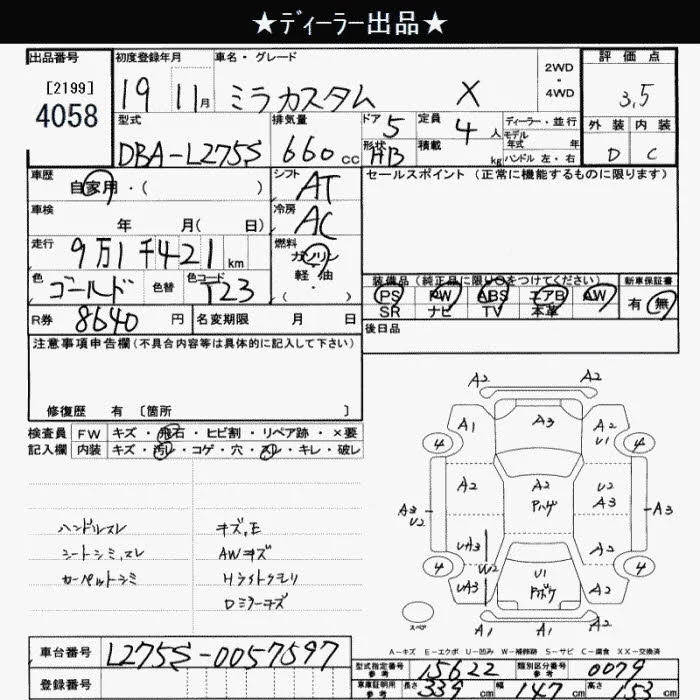 ★ディーラー出品★
出品番号
[2199]
4058
初度登録年月
19 11月
車名・グレード
ミラカスタム X
2WD
・
4WD
評価点
3,5
外装 内装
D C
型式
DBA-L275S
排気量
660 cc
ドア 5
形状 HB
定員 4 人
積載 kg
ディーラー・並行
モデル年式 年
ハンドル 左・右
車歴
自家用・( )
シフト AT
セールスポイント (正常に機能するものに限ります)
車検
年 月( 日)
冷房 AC
走行
9万1千421 km
燃料
ガソリン
軽・油
( ・ )
色
ゴールド
色替
色コード
T23
装備品(純正品に限り○をつけてください)
PS PW ABS エアB AW
SR ナビ TV 本革
新車保証書
有 無
R券 8640 円
名変期限 月 日
後日品
注意事項申告欄(不具合内容等は具体的に記入して下さい)
修復歴 有 [箇所 ]
検査員 FW キズ・飛石・ヒビ割・リペア跡・×要
記入欄 内装 キズ・汚レ・コゲ・穴・スレ・キレ・破レ
ハンドルスレ
シートシミ,スレ
カーペットシミ
キズ,E
AWキズ
Hライトクモリ
Dミラーキズ
A2 A2
A1 A3 A2
U1
4 4
A2 A2 U2
Pハゲ A3
A3 A3
U2
UA3 A2
W2
4 4
UA3 U1 A2
Pボケ
A1 A1 A2
スペア
A-キズ E-エクボ U-凹み W-補修跡 S-サビ C-腐食 XX-交換済
車台番号 L275S-0057597
登録番号
型式指定番号 参考 15622
類別区分番号 参考 0079
車庫証明用 参考 長さ 339 cm 幅 147 cm 高さ 153 cm